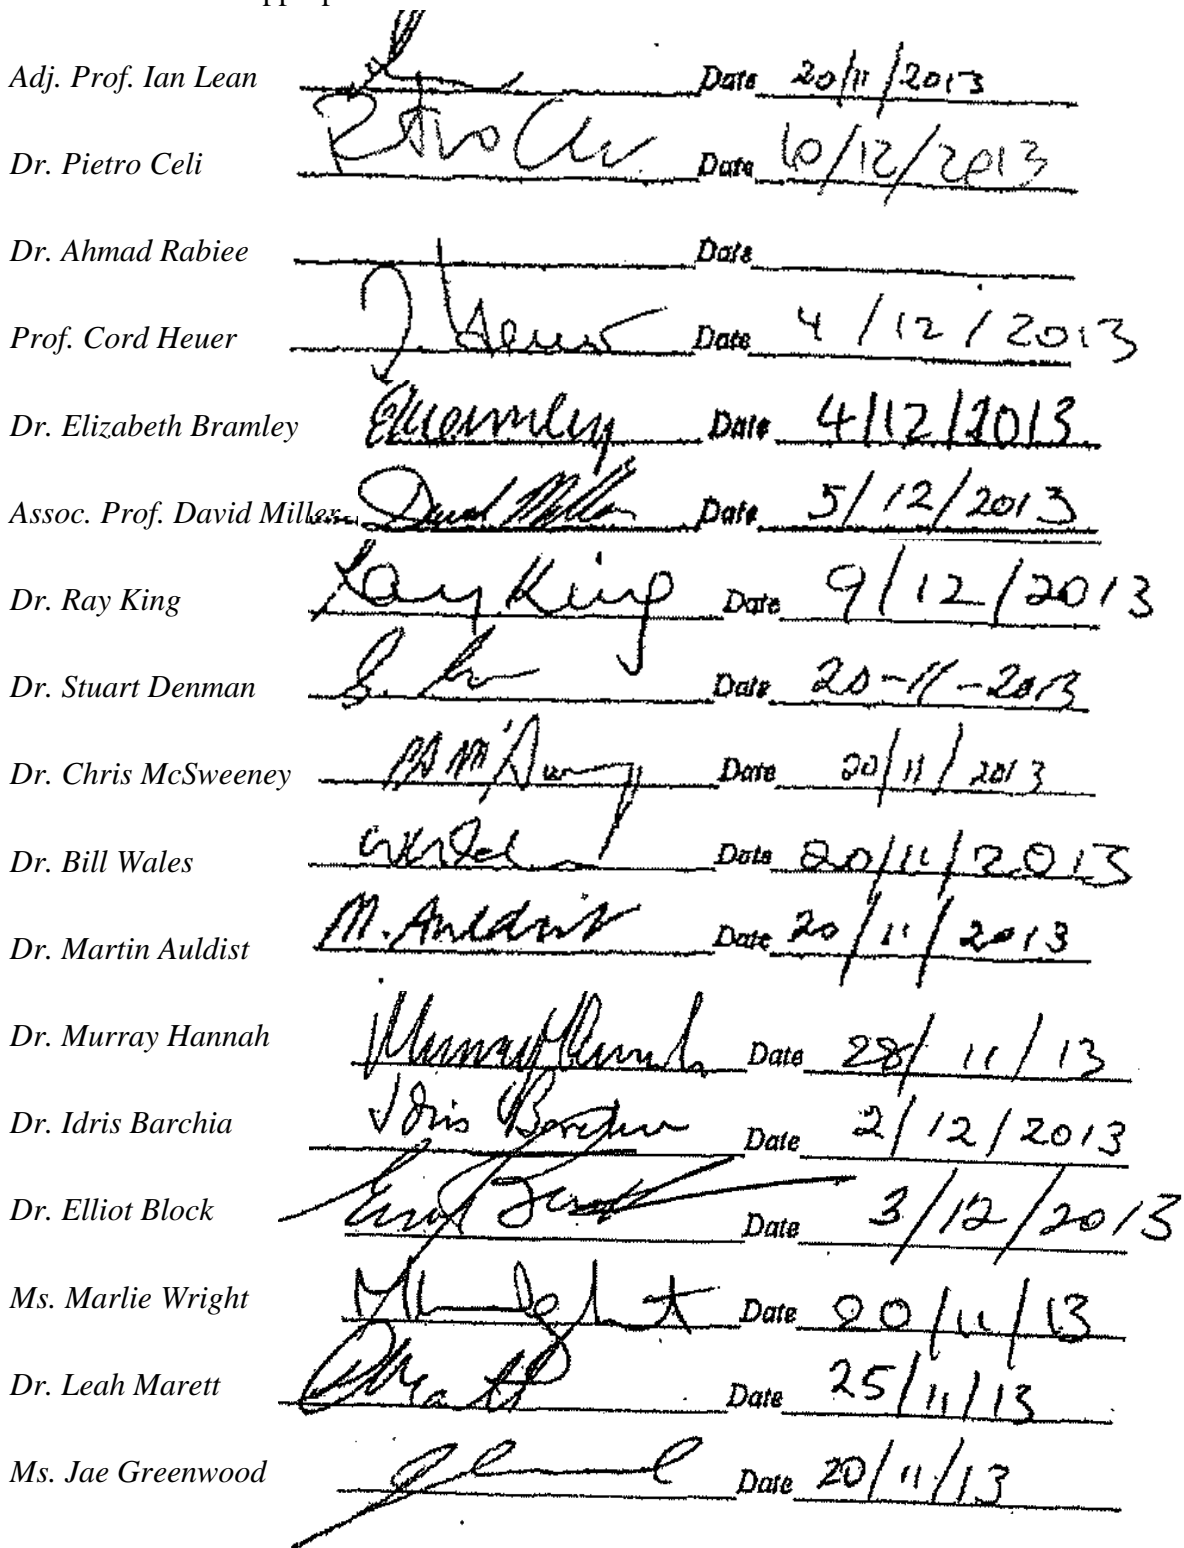 Adj. Prof. Ian Lean Date 20/11/2013
Dr. Pietro Celi Pietro Celi Date 10/12/2013
Dr. Ahmad Rabiee Date
Prof. Cord Heuer Heuer Date 4/12/2013
Dr. Elizabeth Bramley EBramley Date 4/12/2013
Assoc. Prof. David Miller David Miller Date 5/12/2013
Dr. Ray King Ray King Date 9/12/2013
Dr. Stuart Denman Date 20-11-2013
Dr. Chris McSweeney Date 20/11/2013
Dr. Bill Wales Date 20/11/2013
Dr. Martin Auldist M. Auldist Date 20/11/2013
Dr. Murray Hannah Murray Hannah Date 28/11/13
Dr. Idris Barchia Idris Barchia Date 2/12/2013
Dr. Elliot Block Elliot Block Date 3/12/2013
Ms. Marlie Wright Date 20/11/13
Dr. Leah Marett Date 25/11/13
Ms. Jae Greenwood Date 20/11/13